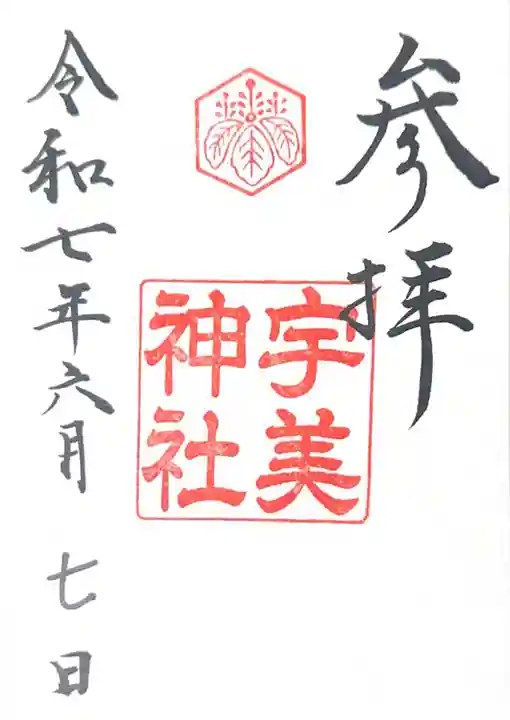 参拝
宇美
神社
令和七年六月 七日